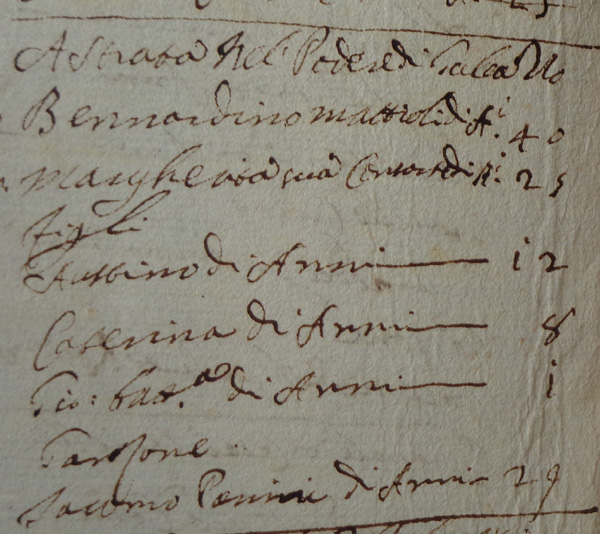 A Strada nel Podere di
Bernardino Mattioli di A.i 40
Margherita sua Consorte di A.i 25
figli
di Anni 12
Caterina di Anni 8
Gio: Batt.a di Anni 1
Garzone
Jacomo di Anni 29